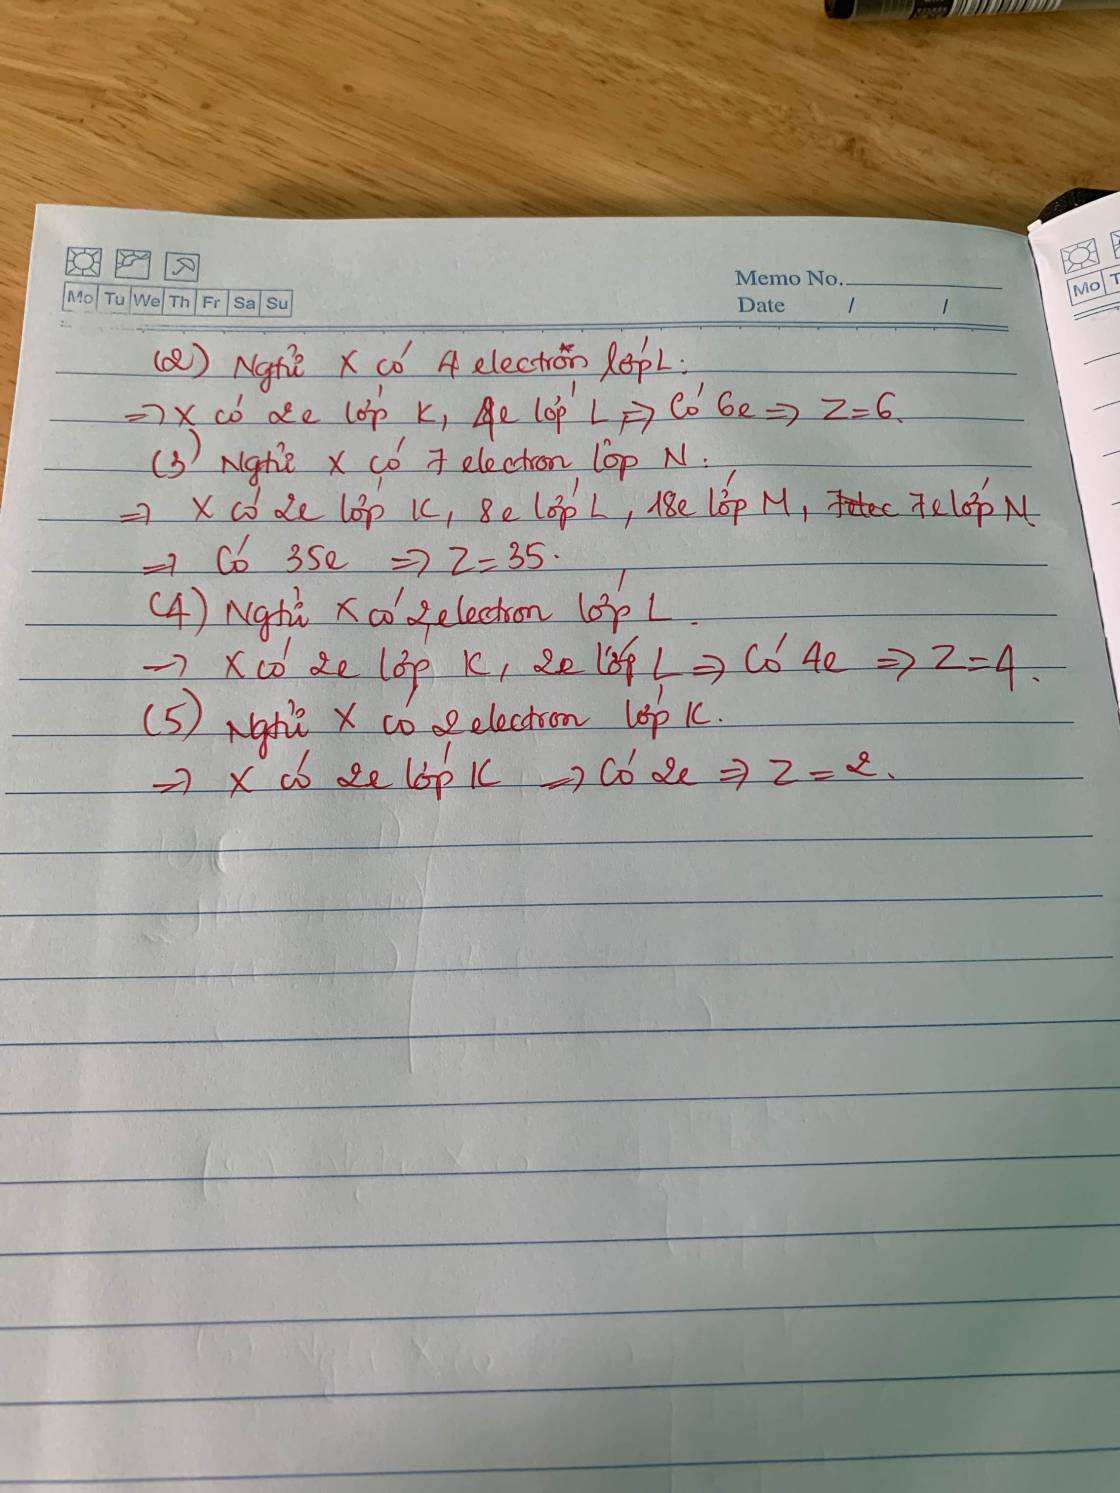 Mo Tu We Th Fr Sa Su
Memo No.
Date / /
Mo T
(2) Nghĩ X có 4 electrôn lớp L.
=> X có 2e lớp K, 4e lớp L => Có 6e => Z=6.
(3) Nghĩ X có 7 electron lôp N.
=> X có 2e lớp K, 8e lớp L, 18e lớp M, 7e lớp N
=> Có 35e => Z=35.
(4) Nghĩ X có 2 electron lớp L.
-> X có 2e lớp K, 2e lớp L => Có 4e => Z=4.
(5) Nghĩ X có 2 electron lớp K.
=> X có 2e lớp K => Có 2e => Z = 2.